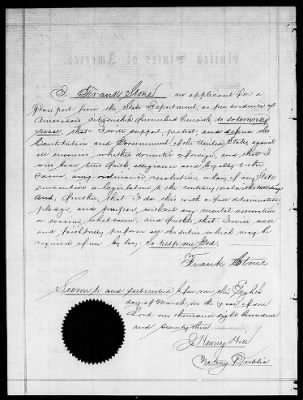 United States of America
I Frank Stone an applicant for a
pass port from the State Department, as prima evidence of
American citizenship do solemnly
swear, that I will support, protect, and defend the
Constitution and Government of the United States against
all enemies whether domestic or foreign, and that I
will bear true faith allegiance and loyalty to the
same, any ordinance, resolution or law of any State
convention or legislature to the contrary notwithstanding
And, further, that I do this with a full determination,
pledge, and purpose without any mental reservation
or evasion whatsoever, and further that I will well
and faithfully perform all the duties which may be
required of me by law; So help me God.
Frank Stone
Sworn to and subscribed before me this Eighth
day of March in the year of our
Lord one thousand eight hundred
and seventy three
J. Harvey
Notary Public